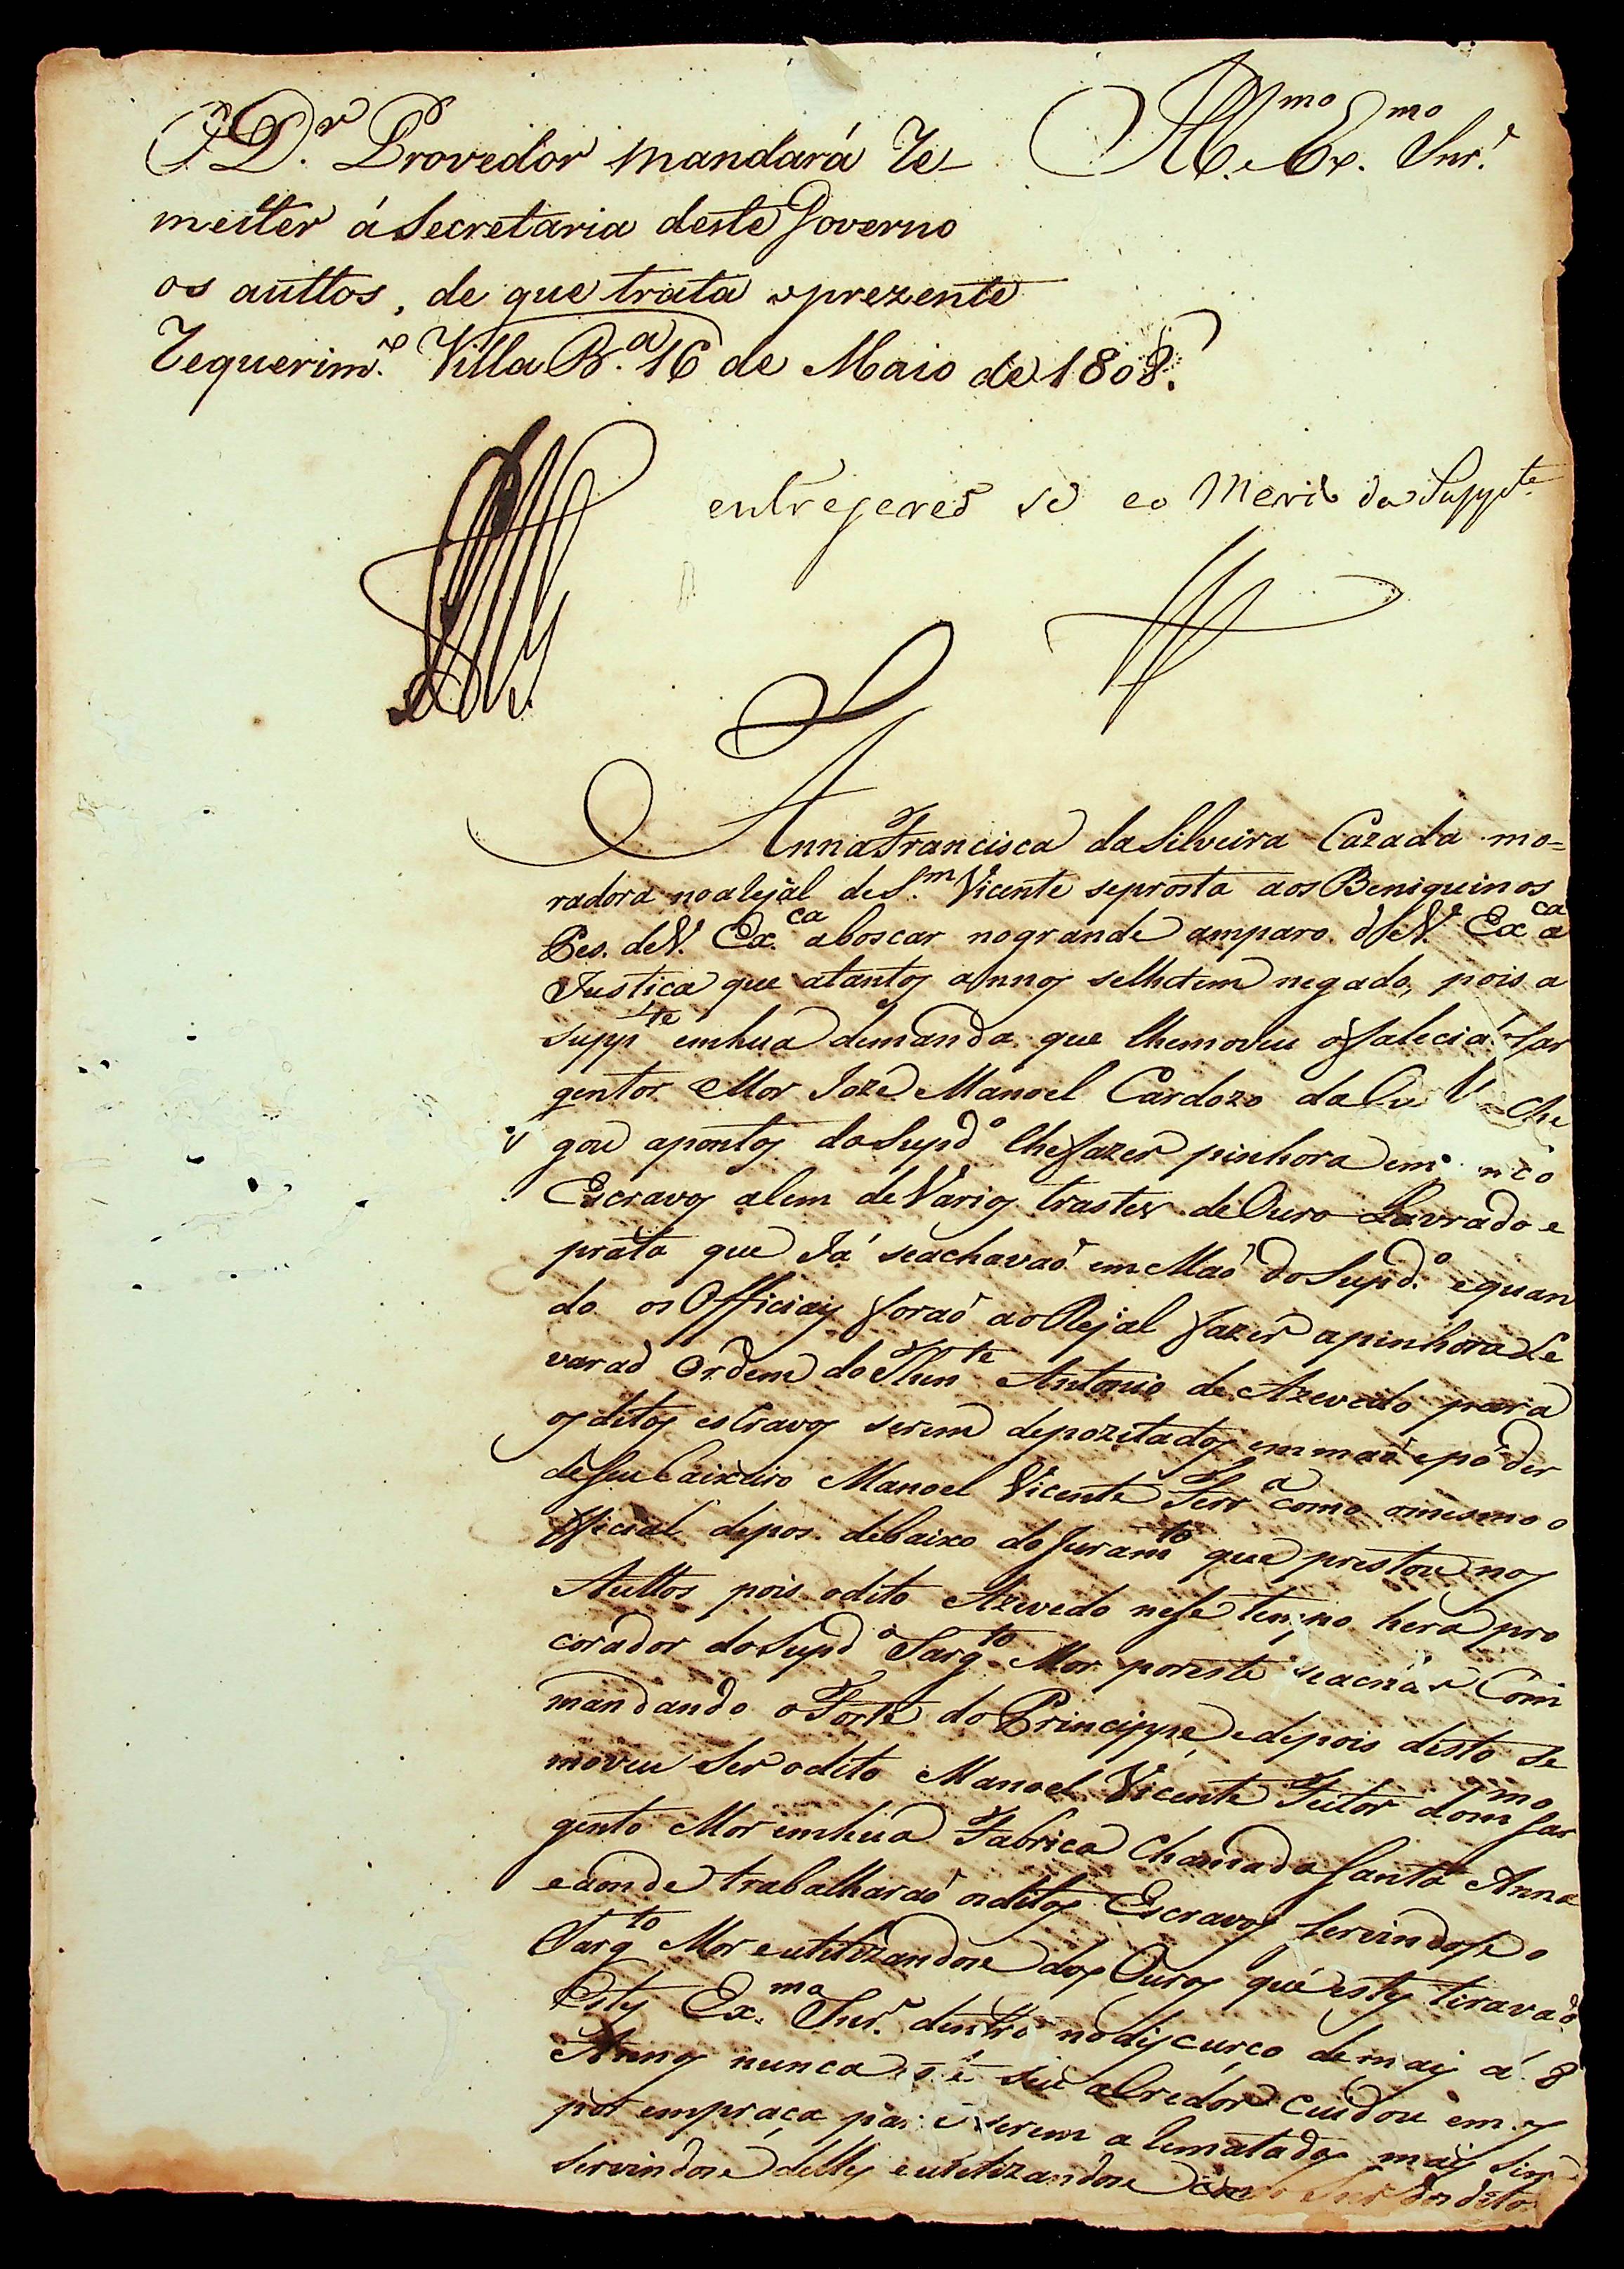 O D.r Provedor mandará Re-
metter á Secretaria deste Governo
os auttos, de que trata o prezente
Requerim.to Villa B.a 16 de Maio de 1808.
Ill.mo e Ex.mo Snr.
se ao Merid da Supp.te
Anna Francisca da Silveira Cazada mo=
radora no arejal de S.m Vicente se prosta aos Beniguinos
Pes. de V. Ex.ca a boscar no grande amparo de V. Ex.ca a
Justica que a tantos annos se lhe tem negado, pois a
supp.te em hua demanda que lhe moveu o falecido Sar
gentor Mor Joze Manoel Cardozo da Che
gou a pontos do Supd.o lhe fazer pinhora em
Escravos alem de Varios trastes de Ouro Lavrado e
prata que Já se achavaõ em Maõ do Supd.o e quan
do os Officiais foraõ ao Rejal fazer a pinhora Le
varaõ Ordem do Thn.te Antonio de Azevedo para
os ditos escravos serem depozitados em maõ e poder
de seu Caixeiro Manoel Vicente Ferr.a como o mesmo o
fficial depos debaixo do Juram.to que prestou nos
Auttos pois o dito Azevedo nesse tempo hera pro
corador do Supd.o Sarg.to Mor por este se achar Com
mandando o Forte do Princippe e depois disto se
moveu ser o dito Manoel Vicente Feitor do m.mo Sar
gento Mor em hua Fabrica Chamada Santa Anna
e aonde trabalharaõ os ditos Escravos servindose o
Sarg.to Mor e utilizandose dos Ouros que estes tiravaõ
Estes Ex.mo Snr. dentro no discurco de mais de 8
Annos nunca seu alredor cuidou em os
por em praca para serem a Rematados mais sim
servindose delles e utilizandose como Snr dos ditos